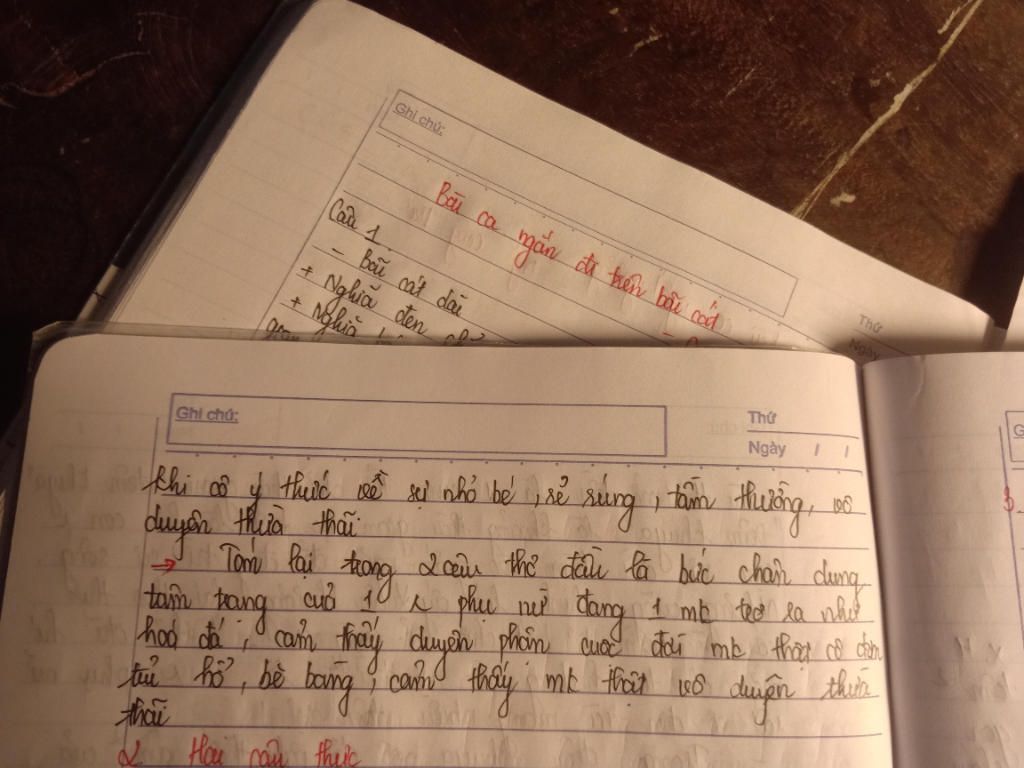 Ghi chú:
Bài ca ngắn đi trên bãi cát
Câu 1
- Bãi cát dài
+ Nghĩa đen
+ Nghĩa
Thứ
Ngày
Ghi chú:
Thứ
Ngày / /
khi có ý thức về sự nhỏ bé, sẻ súng, tầm thường, vô
duyên thừa thãi.
→ Tóm lại trong 2 câu thơ đầu là bức chân dung
tâm trạng của 1 phụ nữ đang 1 mk trơ ra như
hoá đá, cảm thấy duyên phận cuộc đời mk thật cô đơn
tủi hổ, bẽ bàng, cảm thấy mk thật vô duyên thừa
thãi
2 Hai câu thực